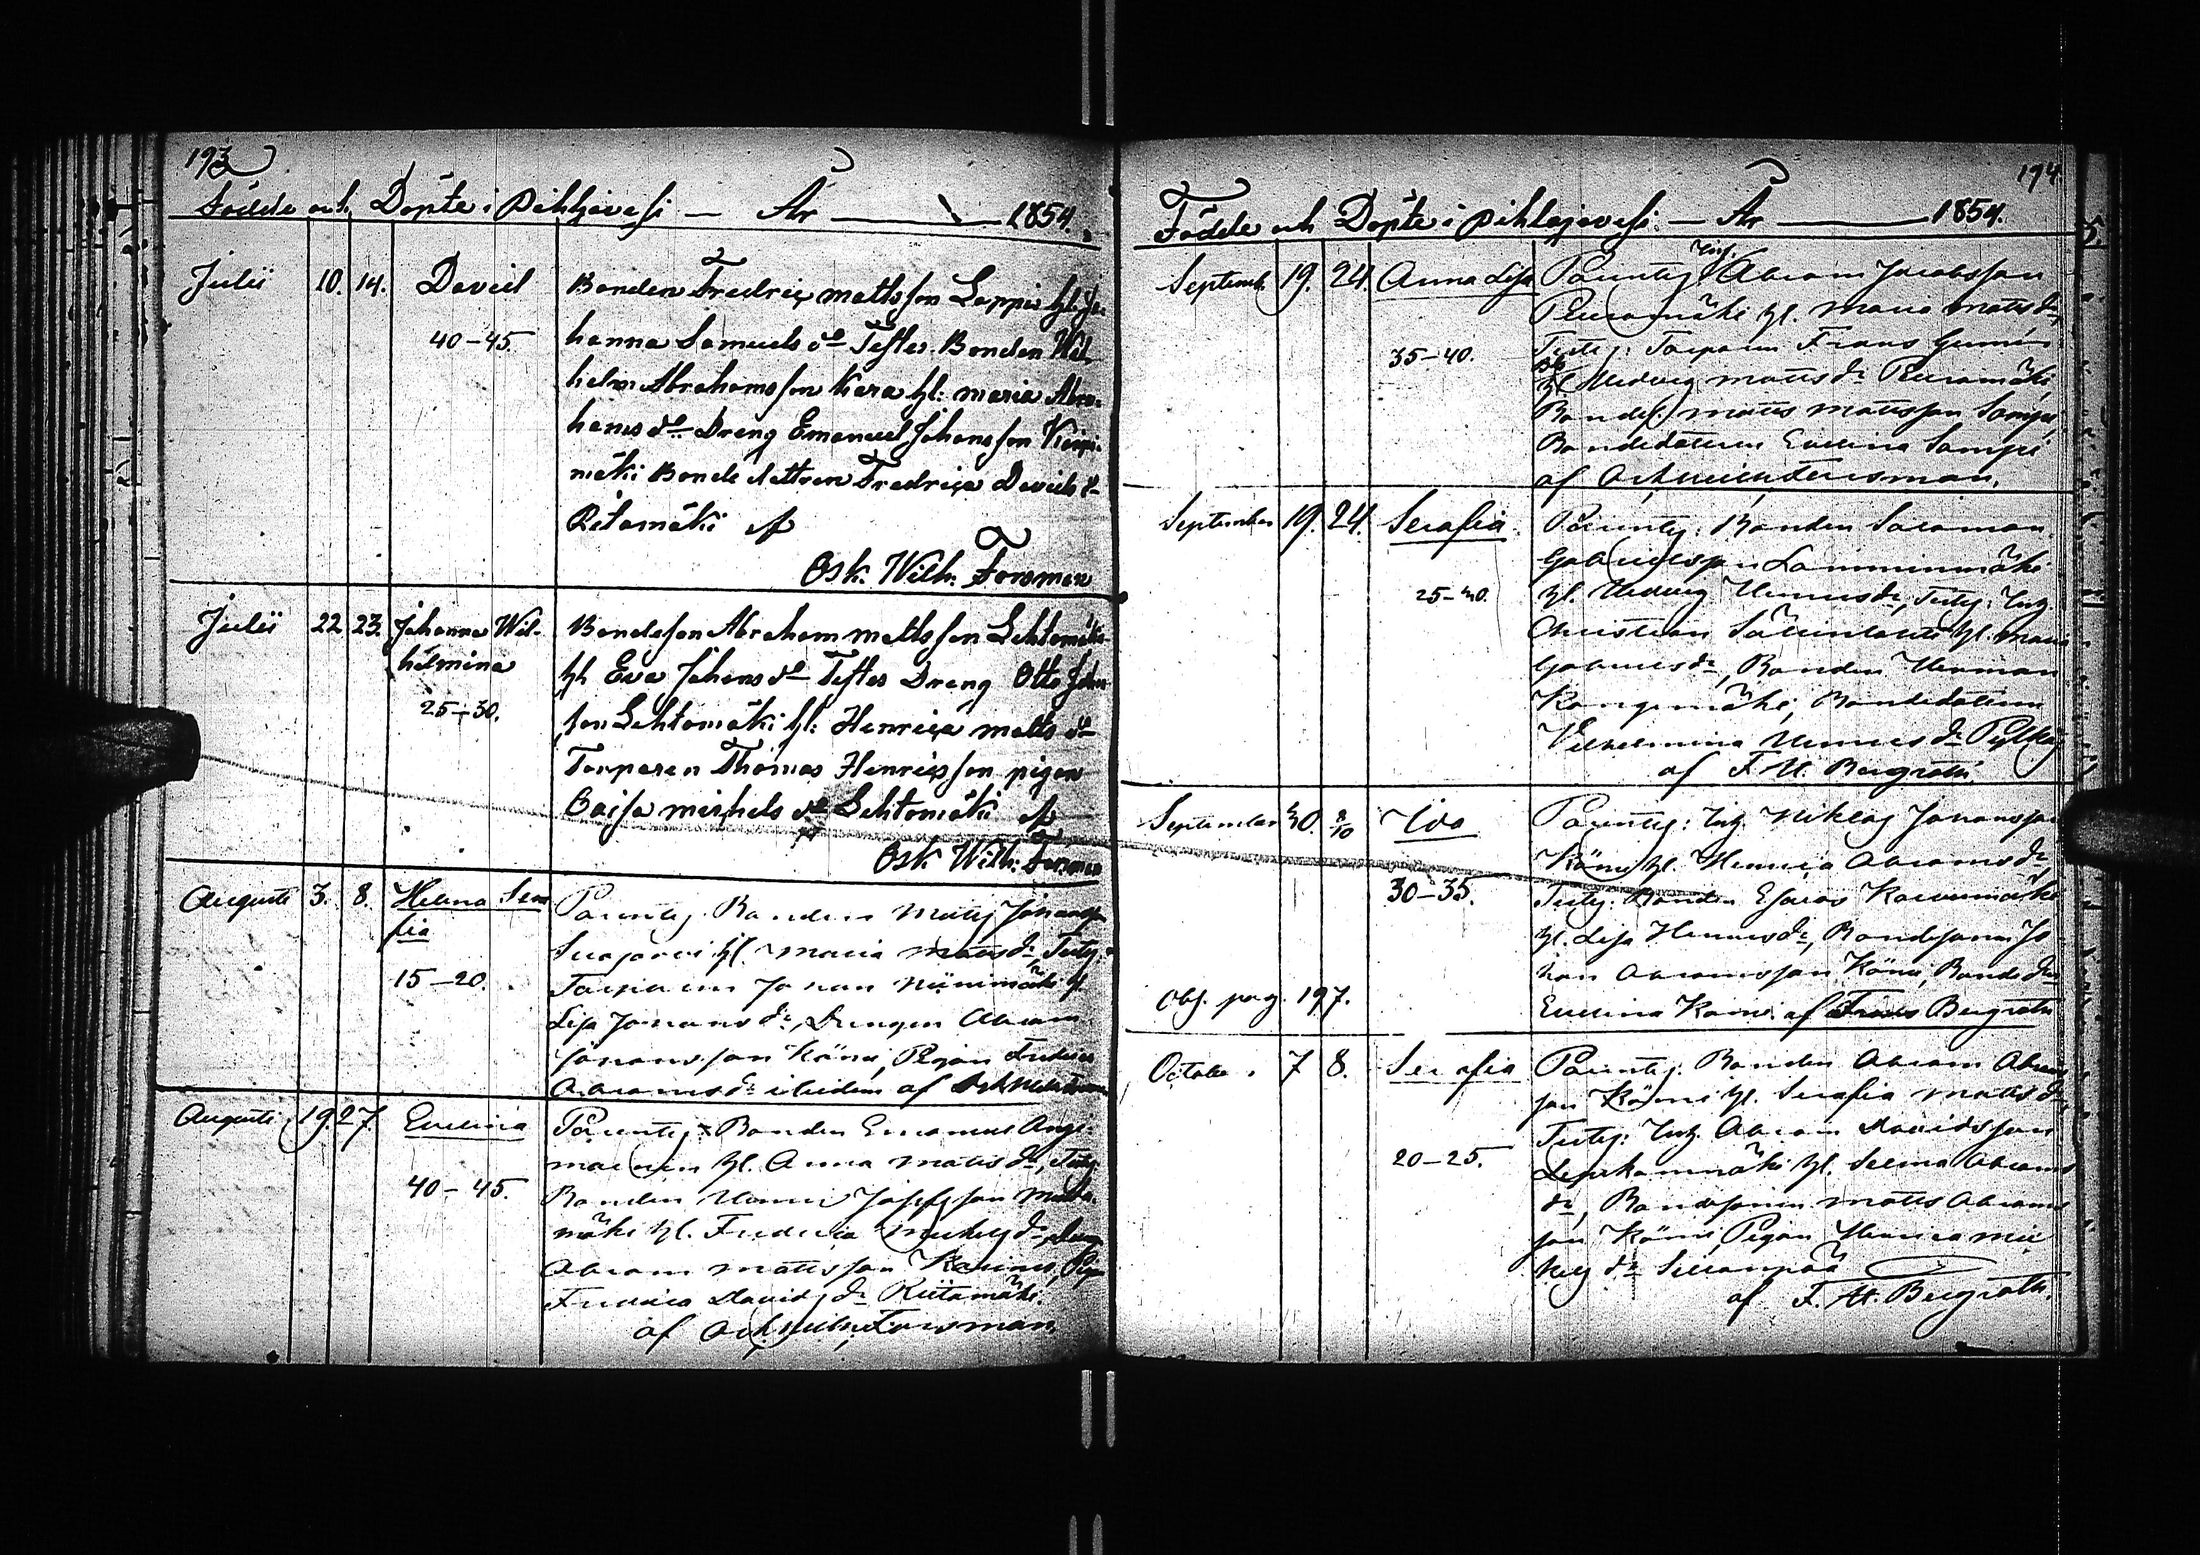 193
Födde och Döpte i Pihlajavesi — År — 1854.
Julii 10. 14. David
40–45.
Bonden Fredric Mattsson Lappi hl: Jo-
hanna Samuels dr Testes. Bonden Wil-
helm Abrahamsson Kara hl: Maria Abra-
hams dr Dreng Emanuel Johansson
mäki Bonde dottren Fredrica Davids dr
Ritamäki af
Osk. Wilh: Forsman
Julii 22 23. Johanna Wil-
helmina
25–30.
Bondesson Abraham Mattsson Lehtomäki
hl Eva Johans dr Testes Dreng Otto Johan
son Lehtomäki hl: Henrica Matts dr
Torparen Thomas Henricsson pigan
Caisa Michels dr Lehtomäki af
Osk Wilh: Forsman
Augusti 3. 8. Helena Sera
fia
15–20.
Parentes. Bonden Matts Johansson
hl. Maria Matts dr, Test:
Torparen Johan Niinimäki hl
Lisa Johans dr, Drengen Abram
Johansson Köni, Pigan Fredrica
Abrams dr ibidem af Osk Wilh Forsman
Augusti 19. 27. Evelina
40–45.
Parentes: Bonden Emanuel
hl. Anna Matts dr, Test:
Bonden Henric Josefsson
mäki hl. Fredrica Michels dr, Dreng
Abram Mattsson Pigan
Fredrica Davids dr Riitamäki.
af Osk Wilh: Forsman.
194
Födde och Döpte i Pihlajavesi — År — 1854.
Septemb. 19. 24. Anna Lisa
35–40.
Parentes Inh. Abram Jacobsson
Peuramäki hl. Maria Matts dr,
Testes: Torparen Frans
hl Hedvig Matts dr Peuramäki,
Bondes: Matts Mattsson Sampi,
Bondedottren Evelina Sampi
af Osk Wilh Forsman.
September 19. 24. Serafia.
25–30.
Parentes: Bonden Salomon
Gabrielsson Lamminmäki
hl. Hedvig Henrics dr, Testes: Inh.
Christian hl. Maria
Gabriels dr, Bonden Herman
Kangimäki, Bondedottren
Vilhelmina Henrics dr
af F. H. Bergroth.
September 30. 8/10 Ida
30–35.
Obs. pag. 197.
Parentes: Inh. Niklas Johansson
Köni hl. Henrica Abrams dr,
Testes: Bonden Esaias
hl. Lisa Henrics dr, Bondesonen Jo
han Abramsson Köni, Bonde dr
Evelina Köni af Frans Bergroth
October. 7 8. Serafia
20–25.
Parentes: Bonden Abram Abrams
son Köni hl. Serafia Matts dr,
Testes: Inh. Abram Davidsson
hl. Selma Abrams
dr, Bondesonen Matts Abrams
son Köni, Pigan Henrica Mic
hels dr
af F. H. Bergroth.